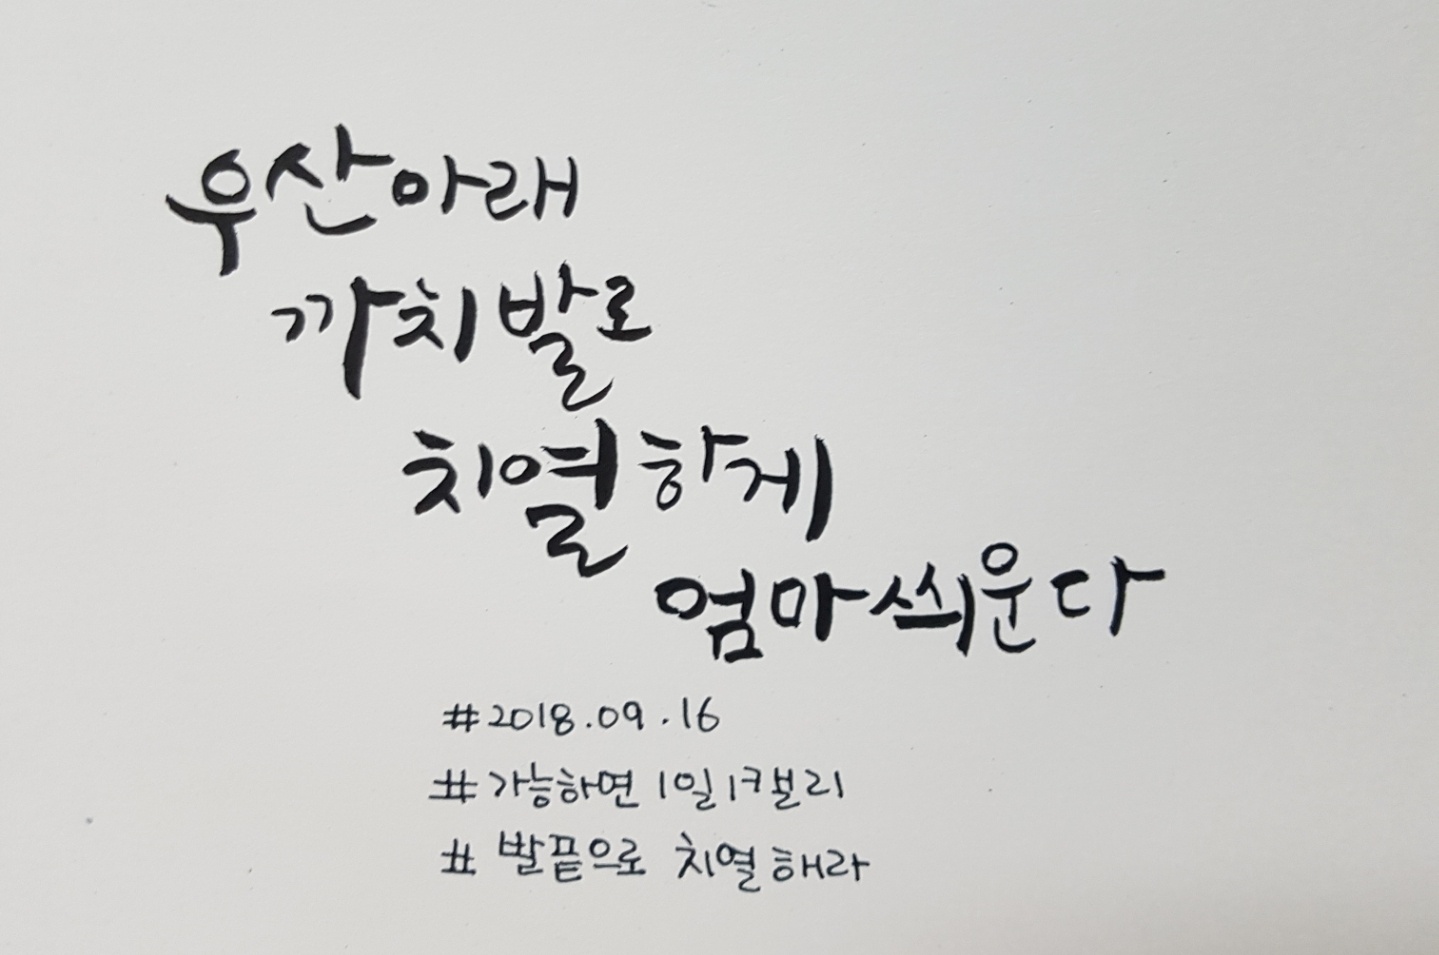 우산아래
까치발로
치열하게
엄마씌운다
#2018.09.16
#가능하면 1일1캘리
# 발끝으로 치열해라